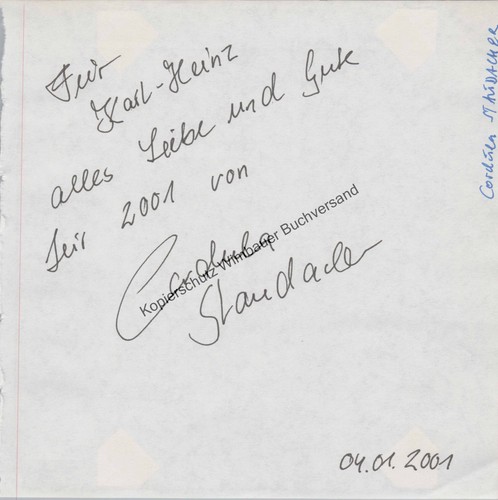 Für
Karl-Heinz
alles Liebe und Gute
für 2001 von
Cordula
Staudacher
Kopierschutz Wimbauer Buchversand
04.01.2001
Cordula STAUDACHER